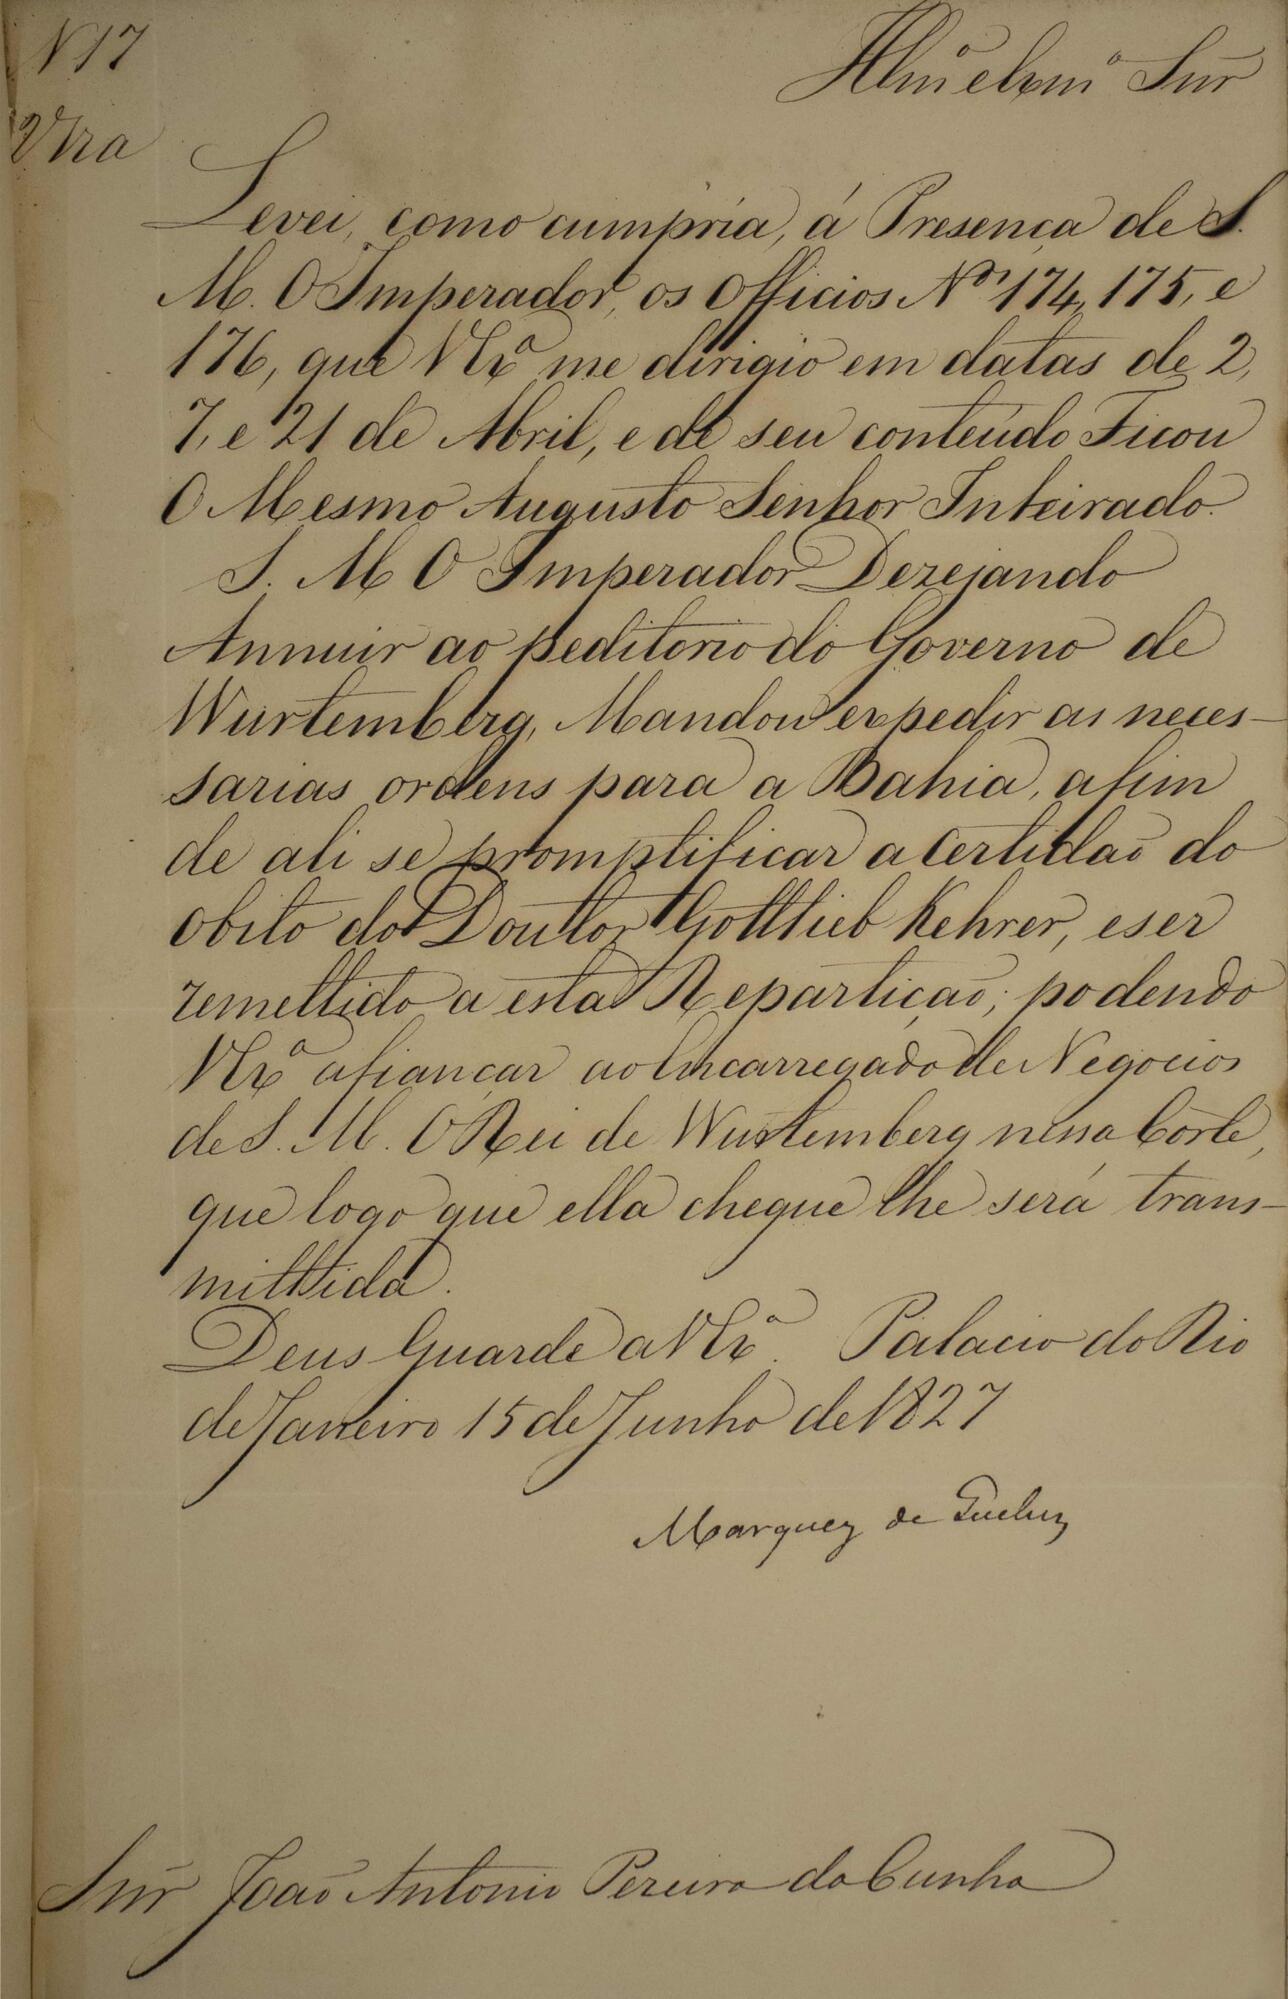 N 17
2ª Via
Illmº e Exmº Snr
Levei, como cumpria, á Presença de S.
M. O Imperador, os Officios Nos 174, 175, e
176, que V Exª me dirigio em datas de 2,
7, e 21 de Abril, e de seu conteúdo Ficou
O Mesmo Augusto Senhor Inteirado.
S. M O Imperador Dezejando
Annuir ao peditorio do Governo de
Wurtemberg, Mandou expedir as neces-
sarias ordens para a Bahia, afim
de ali se promptificar a Certidaõ do
Obito do Doutor Gottlieb Kehrer, e ser
remettido a esta Repartiçaõ; podendo
V Exª afiançar ao Encarregado de Negocios
de S. M. O Rei de Wurtemberg nessa Côrte,
que logo que ella chegue lhe será trans-
mittida.
Deus Guarde a V Exª. Palacio do Rio
de Janeiro 15 de Junho de 1827
Marquez de Queluz
Snr Joaõ Antonio Pereira da Cunha